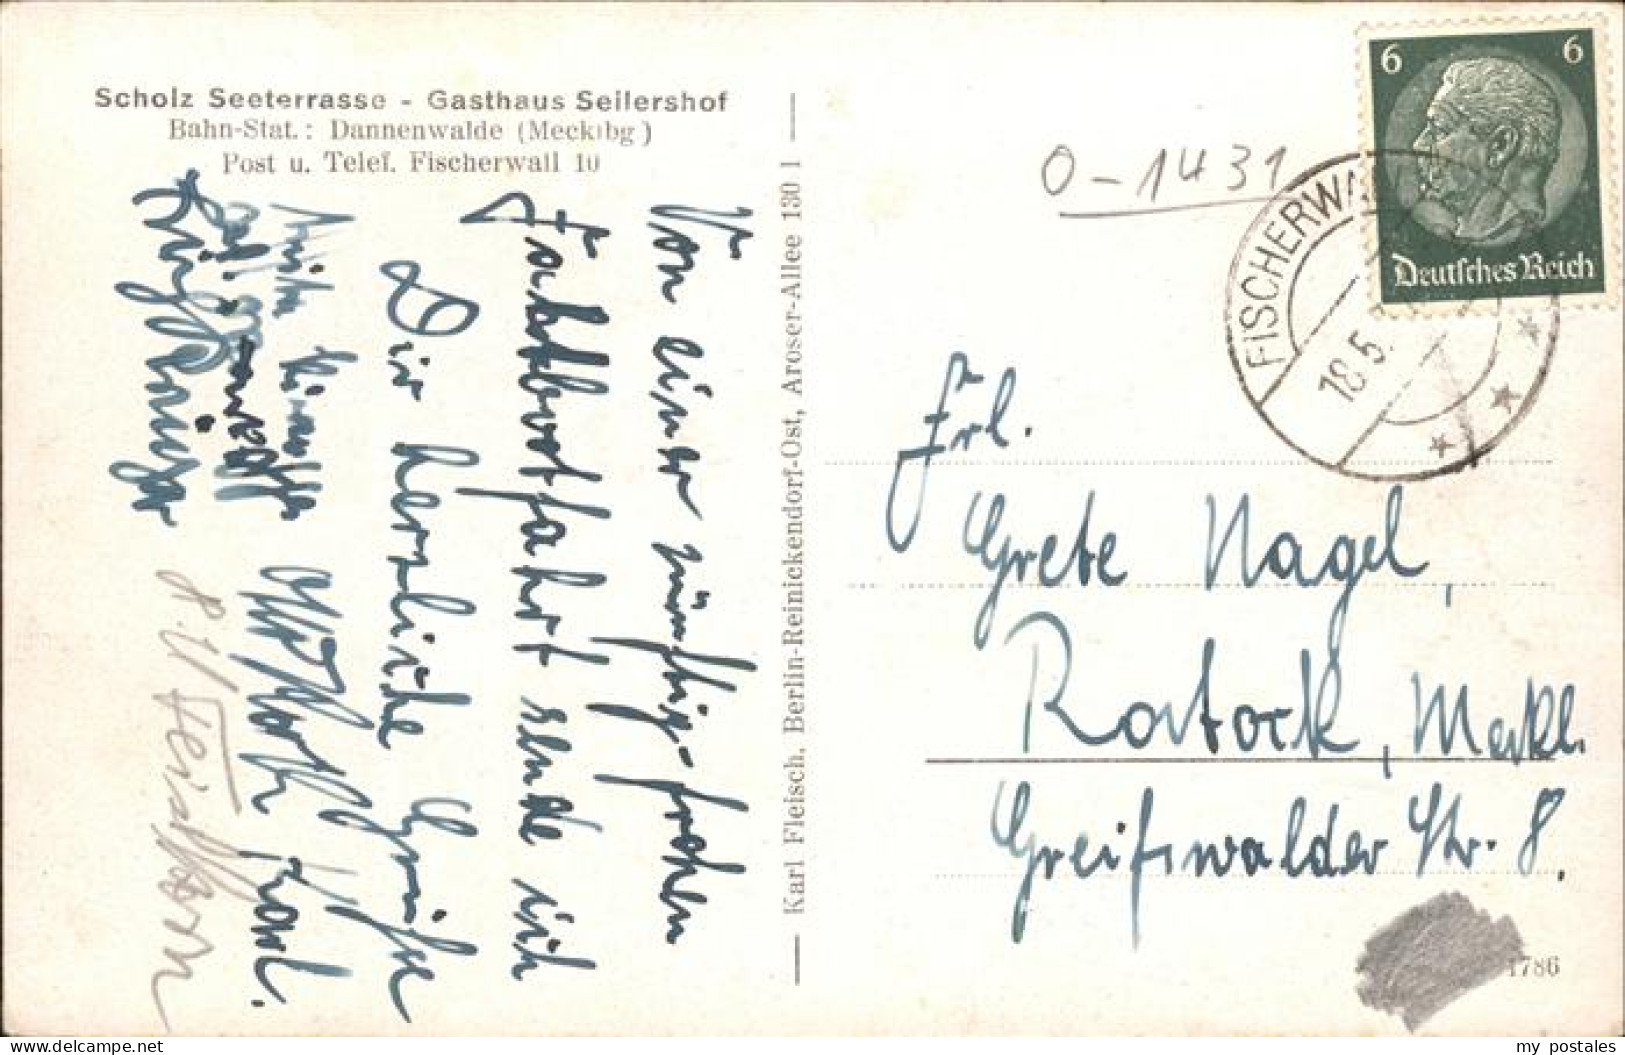 Scholz Seeterrasse - Gasthaus Seilershof
Bahn-Stat.: Dannenwalde (Mecklbg)
Post u. Telef. Fischerwall 10
Von einer zünftig-frohen
Faltbootfahrt sende ich
Dir herzliche Grüße
Karl.
Karl Fleisch, Berlin-Reinickendorf-Ost, Aroser-Allee 130 I
O-1431
6 6
Deutsches Reich
FISCHERWA
18.5.
Frl.
Grete Nagel,
Rostock, Meckl.
Greifswalder Str. 8.
1786
delcampe.net
my_postales